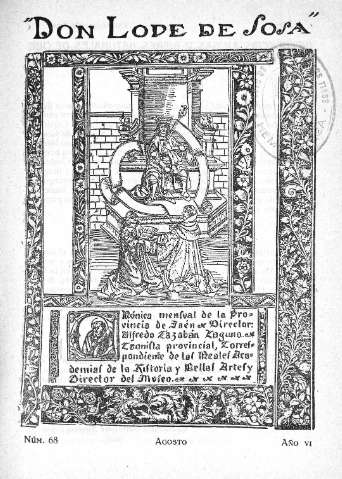 "DON LOPE DE SOSA"
Crónica mensual de la Pro-
vincia de Jaén Director:
Alfredo Cazabán Laguna.
Cronista provincial, Corres-
pondiente de las Reales Aca-
demias de la Historia y Bellas Artes y
Director del Museo.
NÚM. 68 AGOSTO AÑO VI